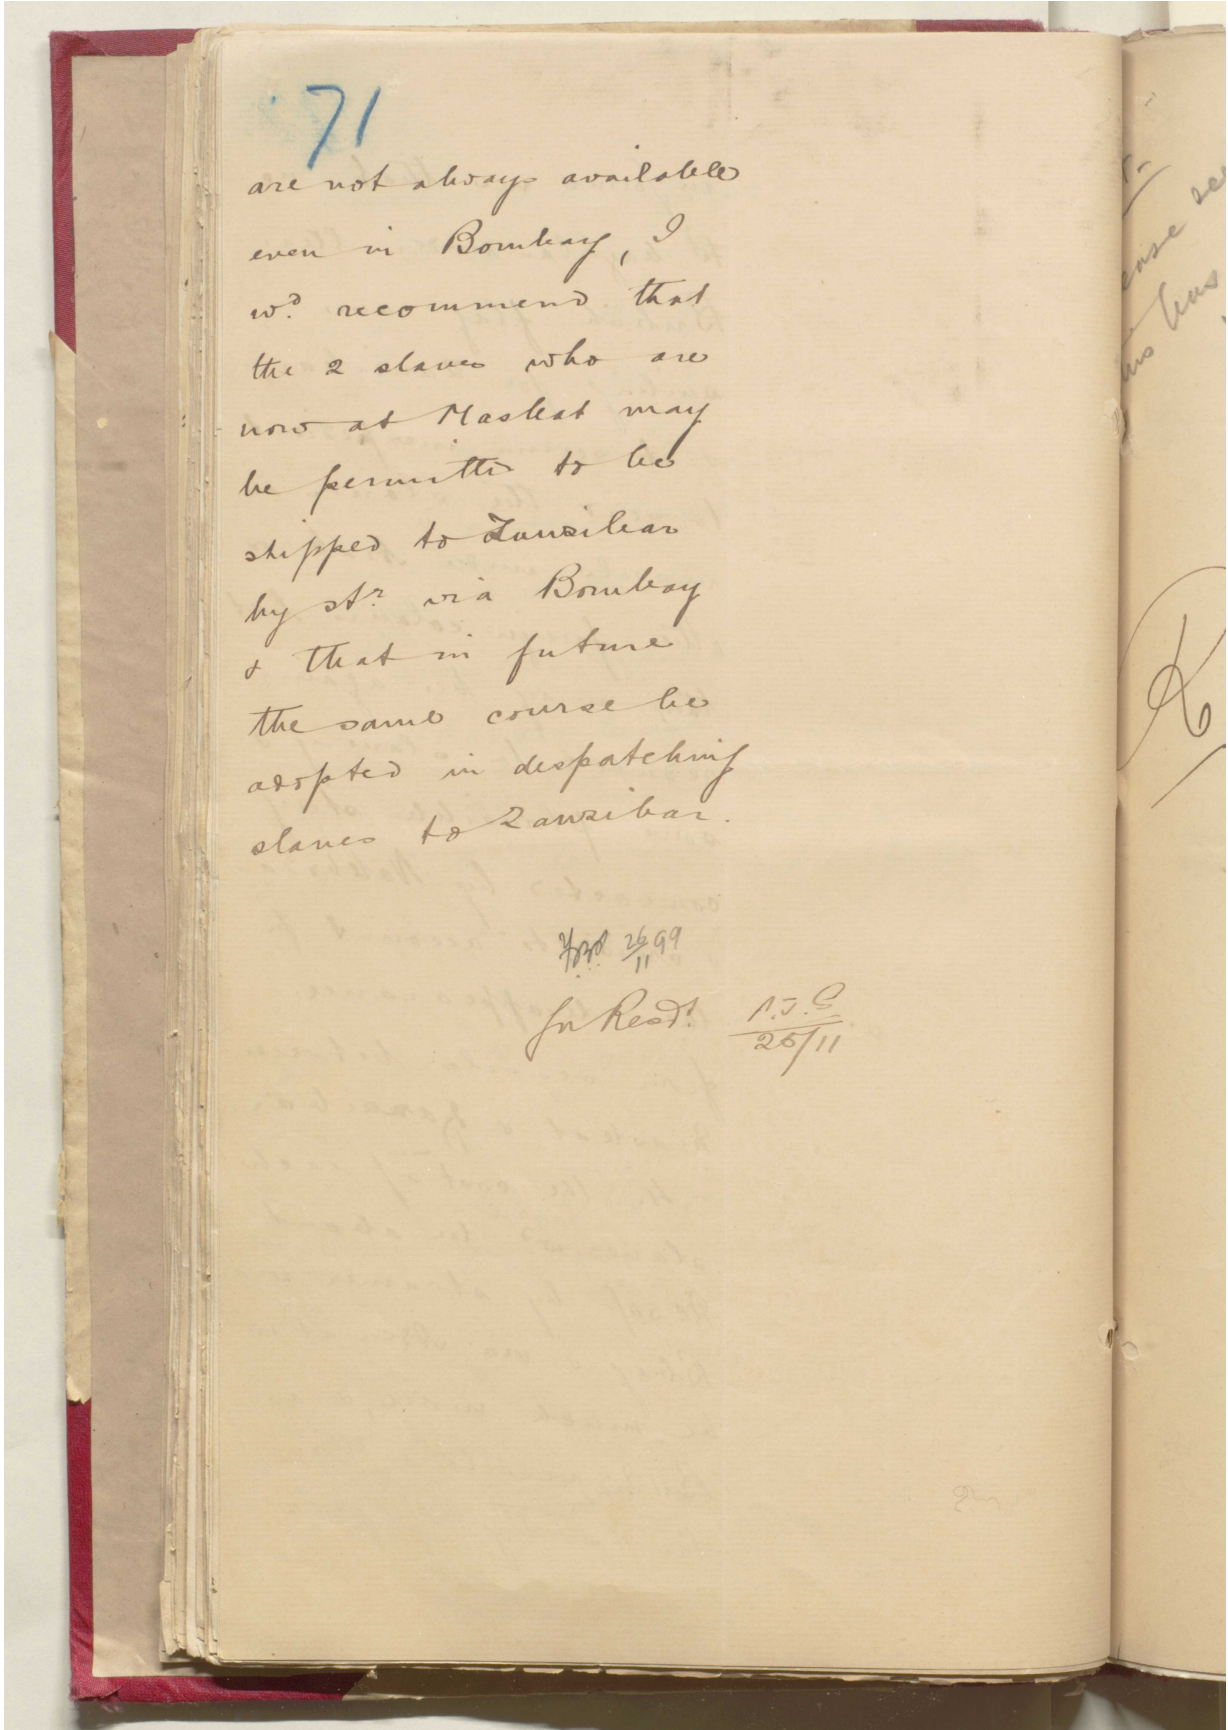 71
are not always available
even in Bombay, I
wd. recommend that
the 2 slaves who are
now at Maskat may
be permitted to be
shipped to Zanzibar
by str. via Bombay
& that in future
the same course be
adopted in despatching
slaves to Zanzibar.
26/11 99
for Resdt.
25/11